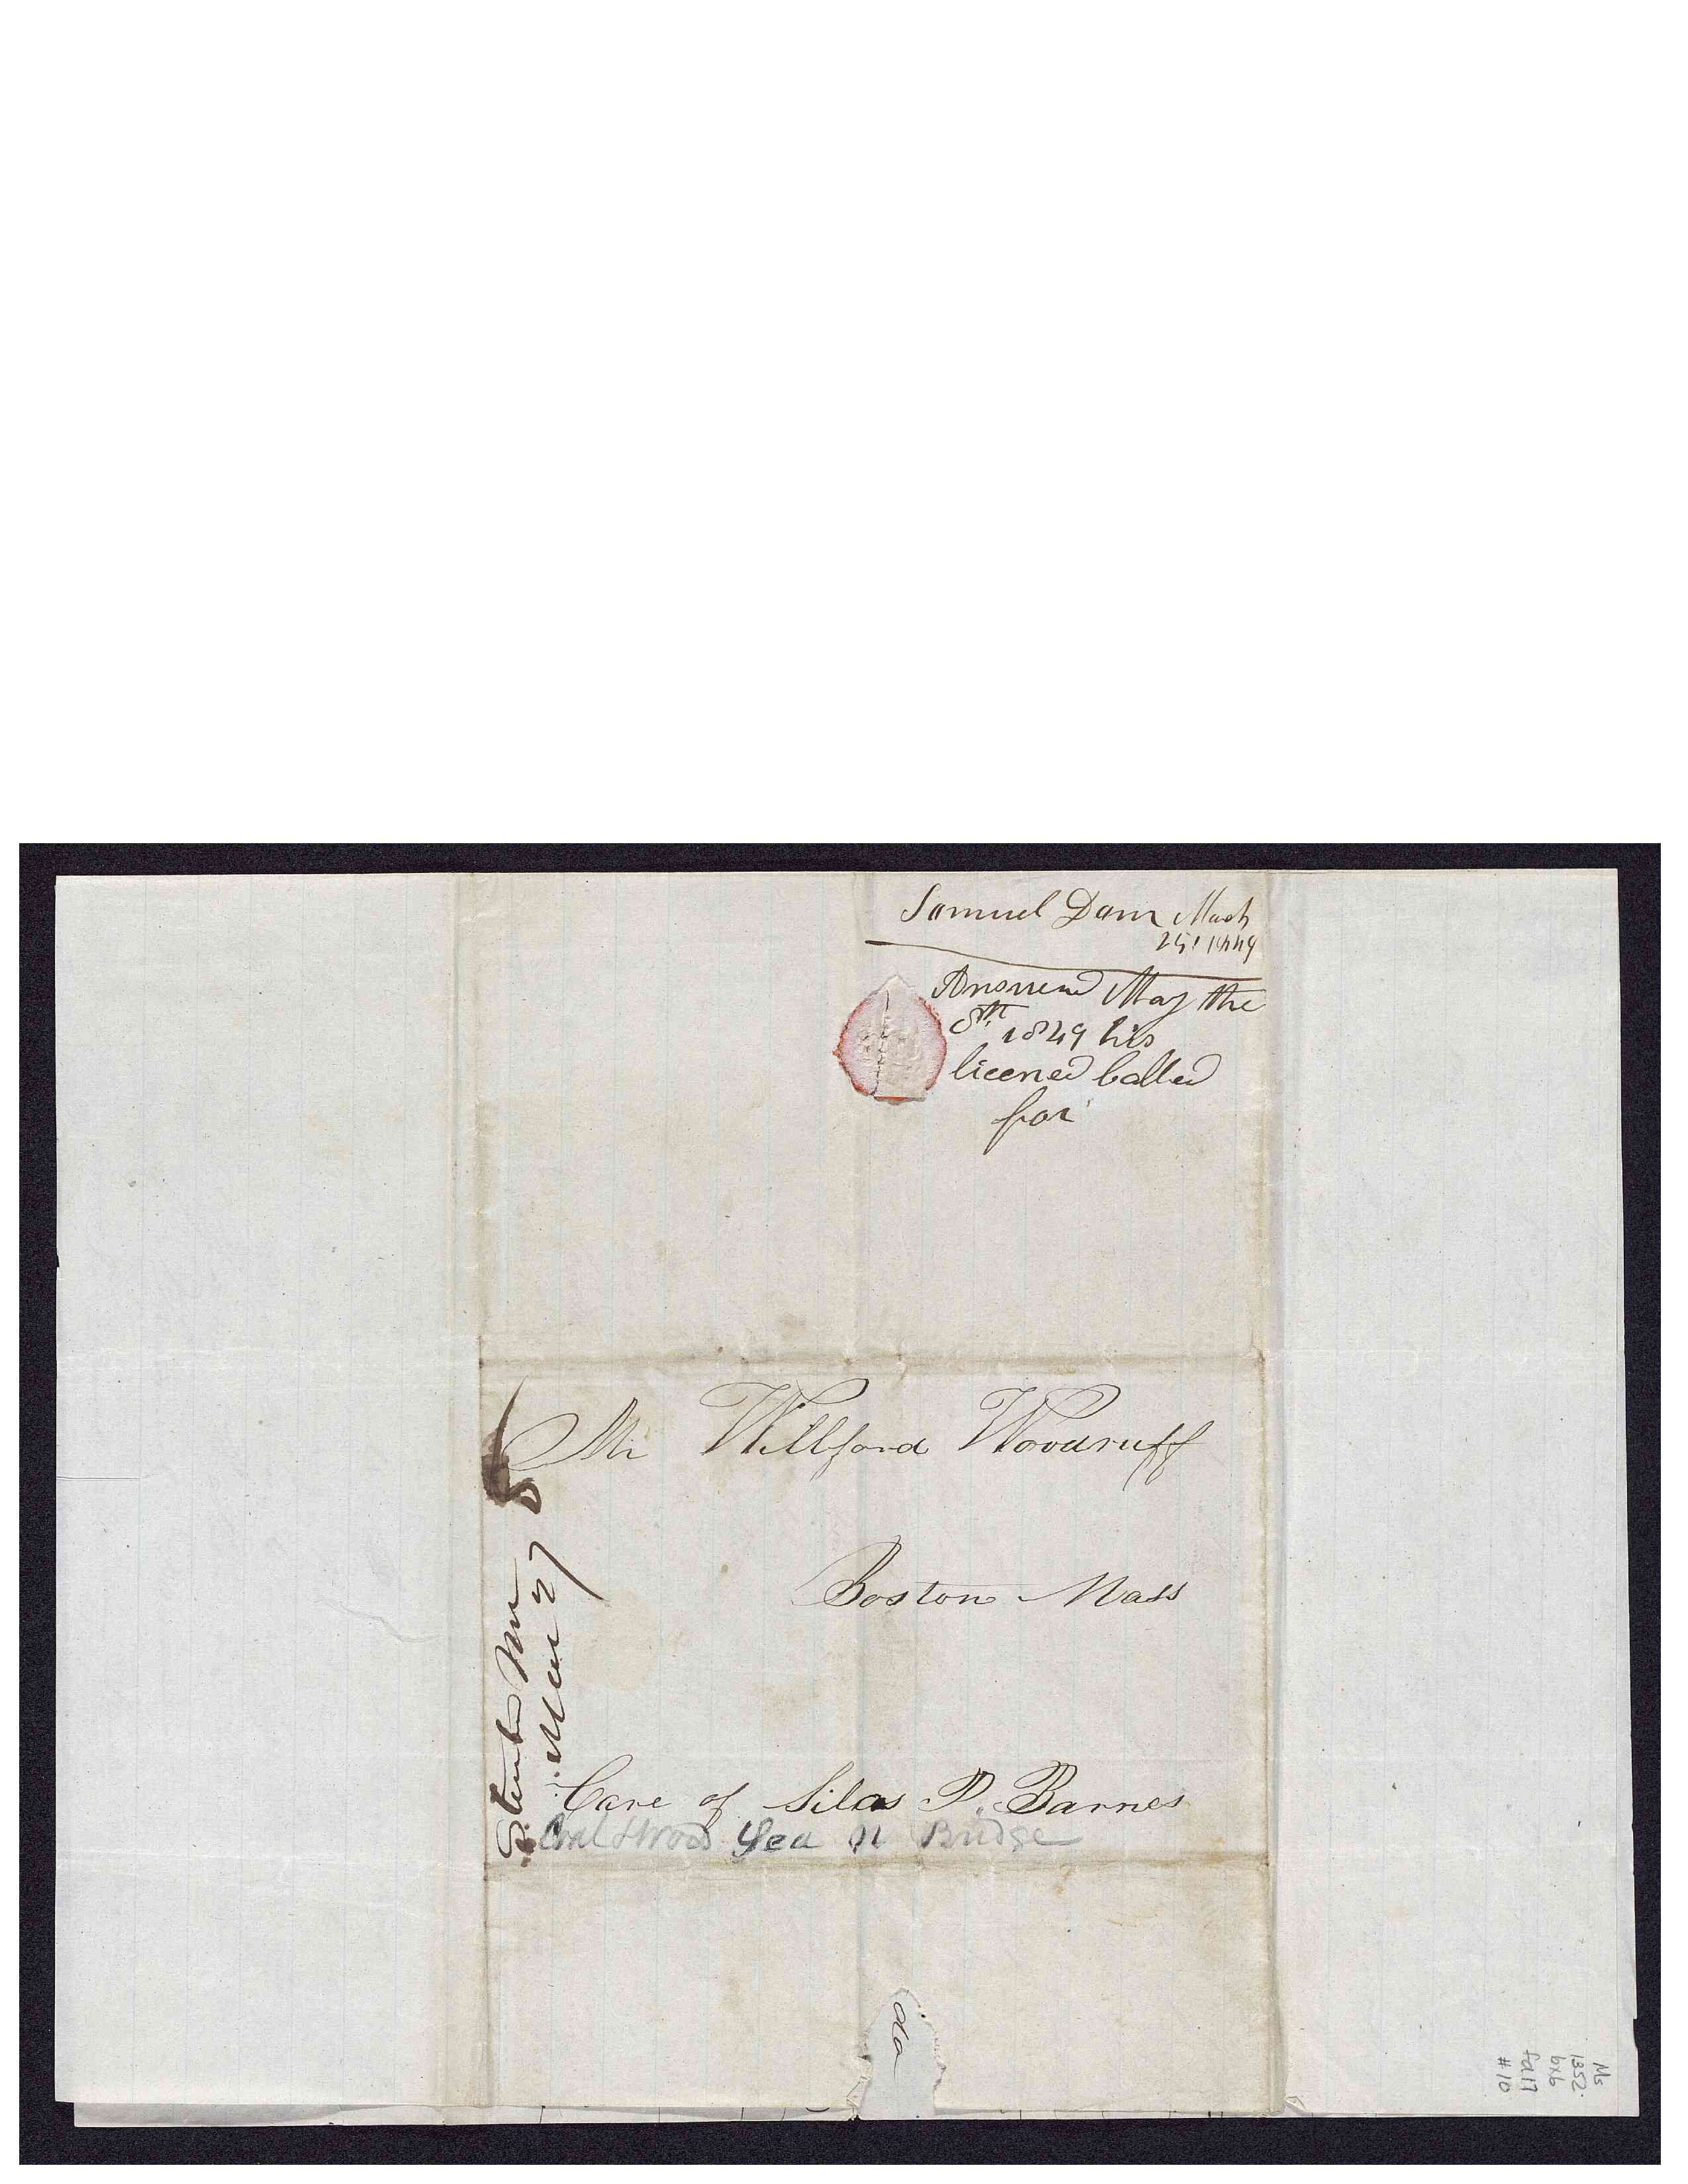 Samuel Dam March
25th 1849
Answered May the
8th 1849 his
licened Called
for
Mr Willford Woodruff
Boston Mass
Care of Silas P. Barnes
Coal & Wood Bridge
Steuben Me
Mar 27
5
da
Ms
1352
bx6
fd 17
#10